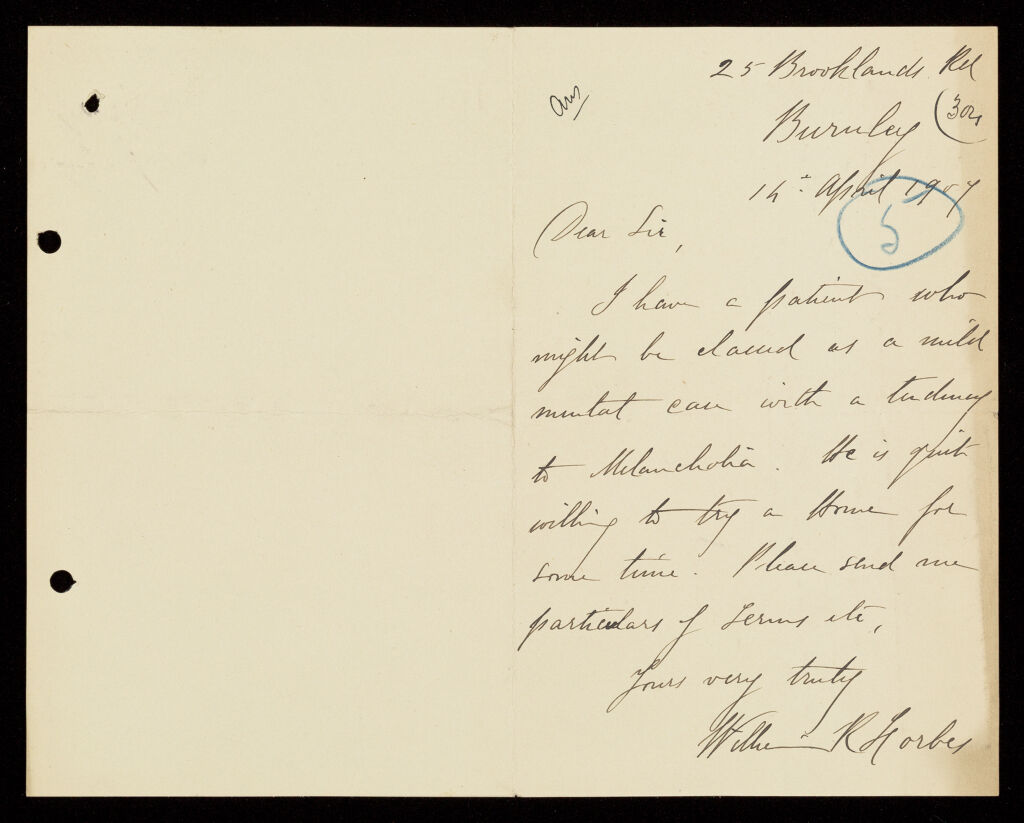 25 Brooklands Rd
Ans
Burnley
14th April 1907
5
Dear Sir,
I have a patient who
might be classed as a mild
mental case with a tendency
to Melancholia. He is quite
willing to try a Home for
some time. Please send me
particulars of Terms etc,
Yours very truly
William R